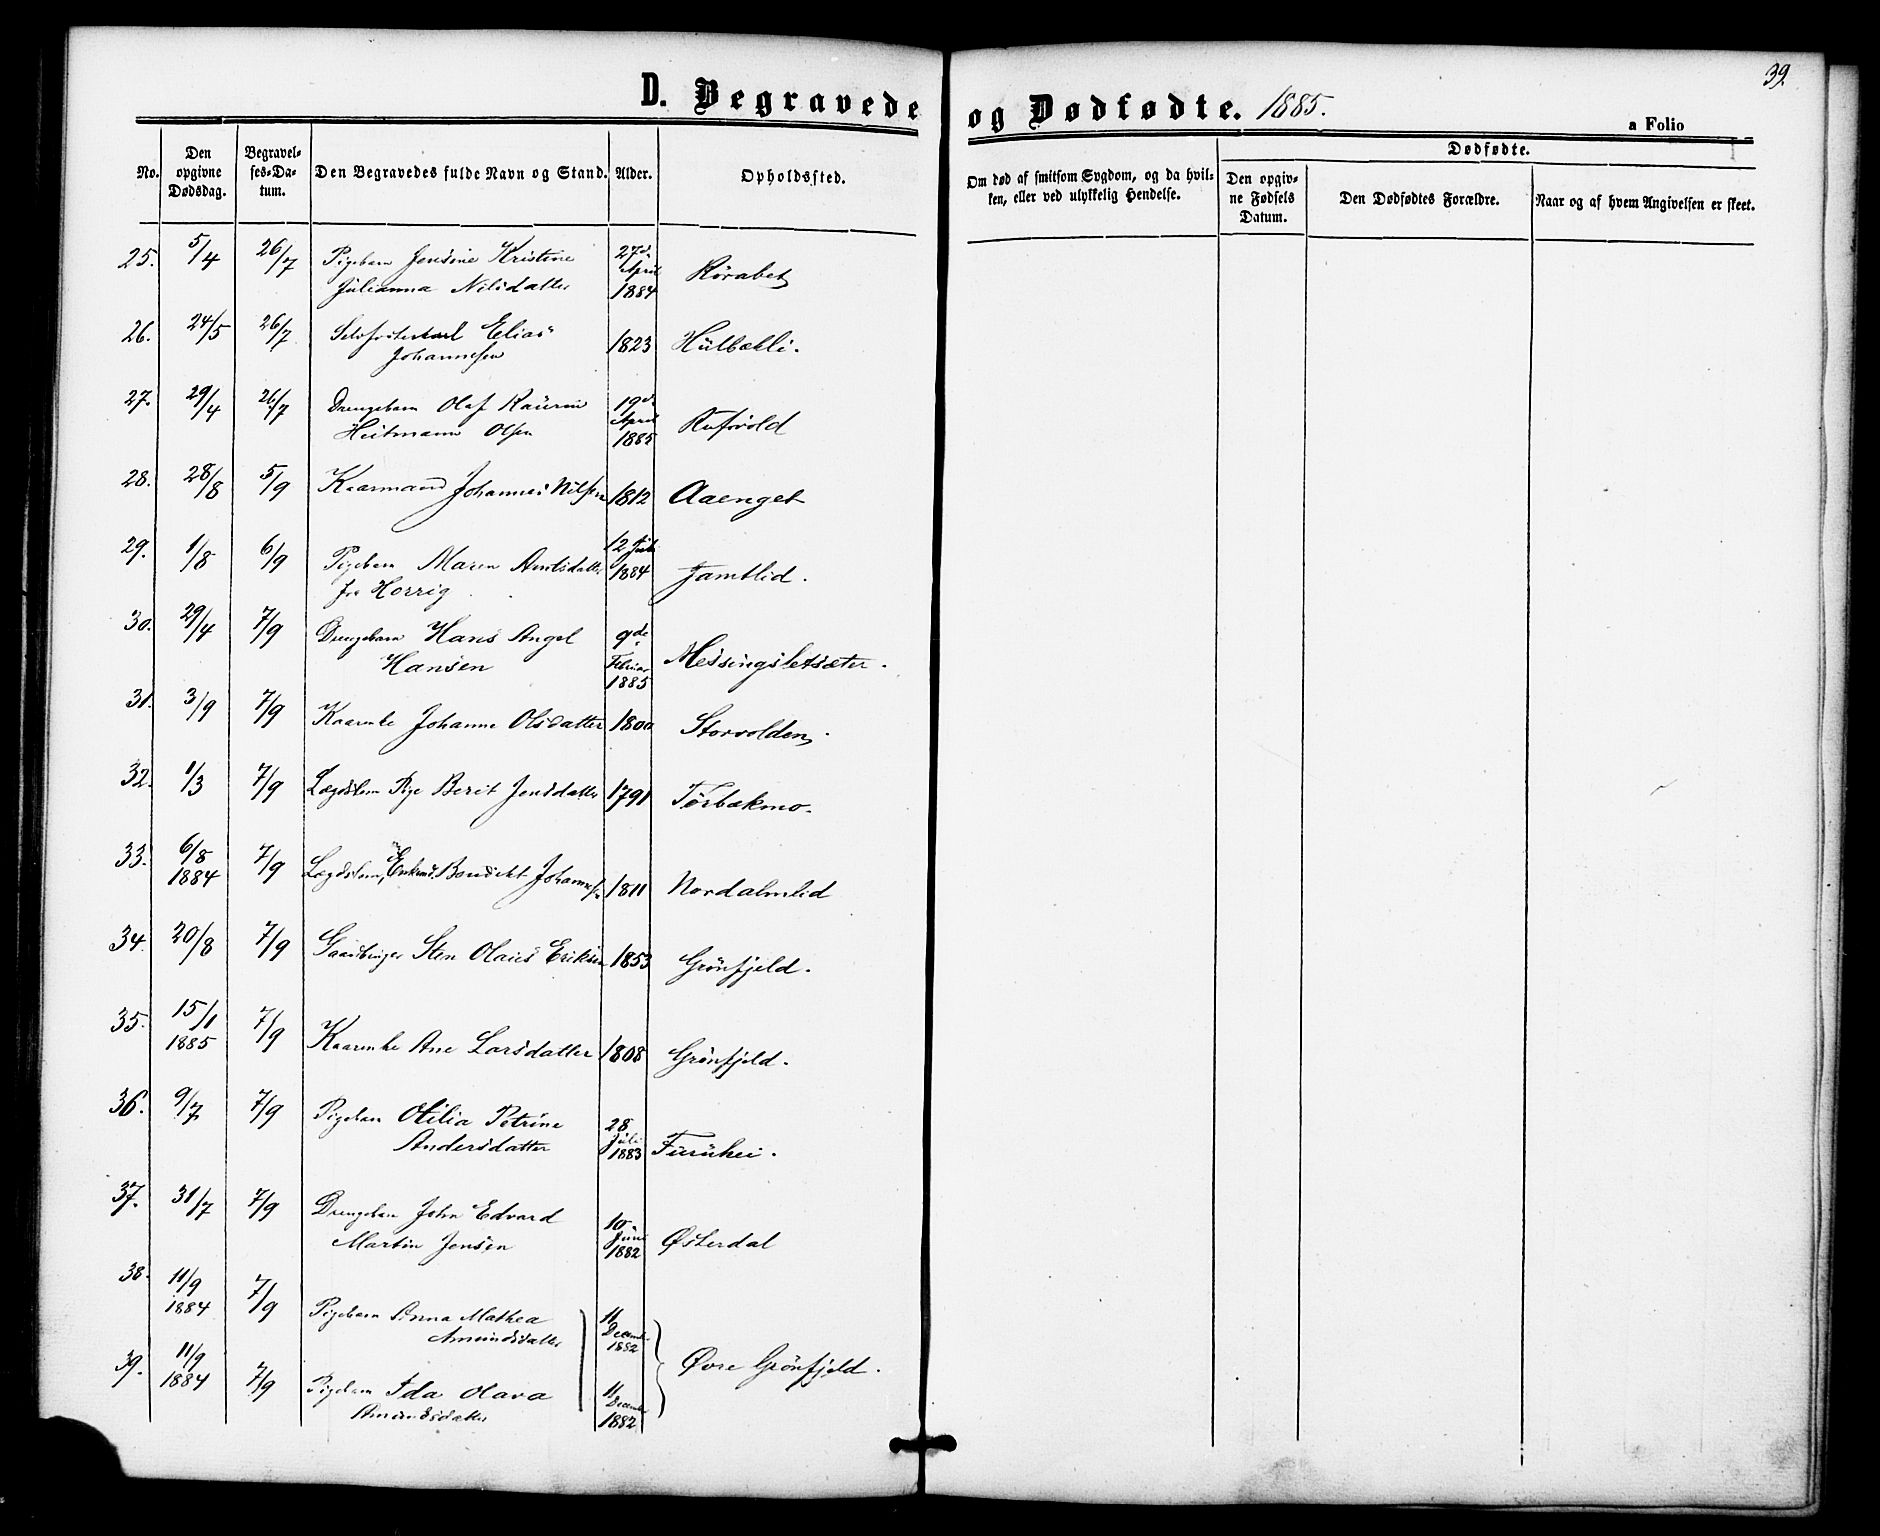 39.
D. Begravede og Dødfødte. 1885.
a Folio
No.
Den opgivne Dødsdag.
Begravelses-Datum.
Den Begravedes fulde Navn og Stand.
Alder.
Opholdssted.
Om død af smitsom Sygdom, og da hvilken, eller ved ulykkelig Hendelse.
Dødfødte.
Den opgivne Fødsels Datum.
Den Dødfødtes Forældre.
Naar og af hvem Angivelsen er skeet.
25. 5/4 26/7 Pigebarn Jensine Kristine 27de April 1884 Rørabet
Julianna Nilsdatter
26. 24/5 26/7 Elias 1823 Hülbækli.
Johannesen
27. 29/4 26/7 Drengebarn Olaf Kaurin 19de April 1885
Heitmann Olsen
28. 28/8 5/9 Kaarmand Johannes Nilsen 1812 Aaenget
29. 1/8 6/9 Pigebarn Maren Arntsdatter 12 1884 Jamtlid.
fra
30. 29/4 7/9 Drengebarn Hans Angel 9de Februar 1885 Messingsletsæter.
Hansen
31. 3/9 7/9 Kaarenke Johanne Olsdatter 1800 Storvolden.
32. 1/3 7/9 Lægdslem Pige Berit Jensdatter 1791 Tørbækmo.
33. 6/8 1884 7/9 Lægdslem, Enkem. Bendikt Johannes. 1811 Nordalmlid
34. 20/8 7/9 Gaardbruger Sten Olaus Eriksen 1853 Grönfjeld.
35. 15/1 1885 7/9 Kaarenke Ane Larsdatter 1808 Grönfjeld.
36. 9/7 7/9 Pigebarn Otilia Petrine 28 Juli 1883 Furuhei.
Andersdatter
37. 31/7 7/9 Drengebarn John Edvard 10 Juni 1882 Østerdal
Martin Jensen
38. 11/9 1884 7/9 Pigebarn Anna Mathea 11 Decemb. 1882
Amundsdatter
Øvre Grönfjeld.
39. 11/9 1884 7/9 Pigebarn Ida Olava 11 Decemb. 1882
Amundsdatter